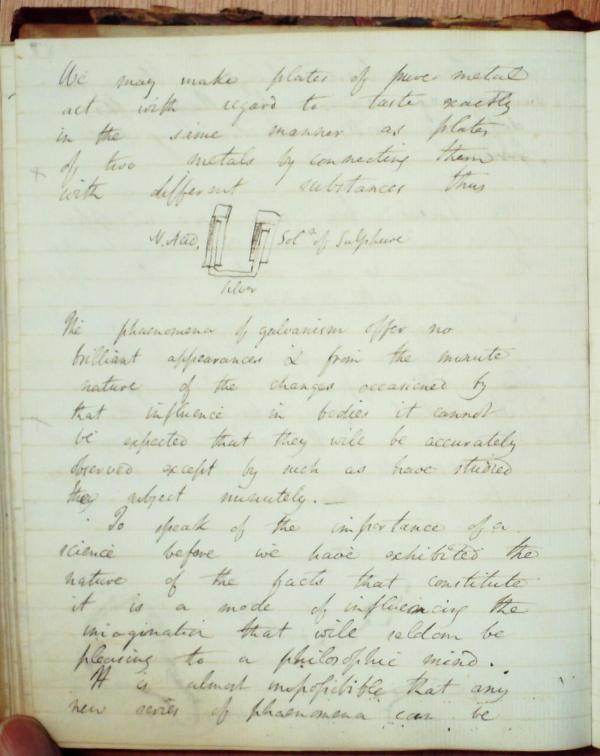 We may make plates of pure metal
act with regard to taste exactly
in the same manner as plates
of two metals by connecting them
with different substances thus
N. Acid. Sol.n of Sulphure
Silver
The phaenomena of galvanism offer no
brilliant appearances & from the minute
nature of the changes occasioned by
that influence in bodies it cannot
be expected that they will be accurately
observed except by such as have studied
the subject minutely. —
To speak of the importance of a
science before we have exhibited the
nature of the facts that constitute
it is a mode of influencing the
imagination that will seldom be
pleasing to a philosophic mind.
It is almost impossible that any
new series of phaenomena can be